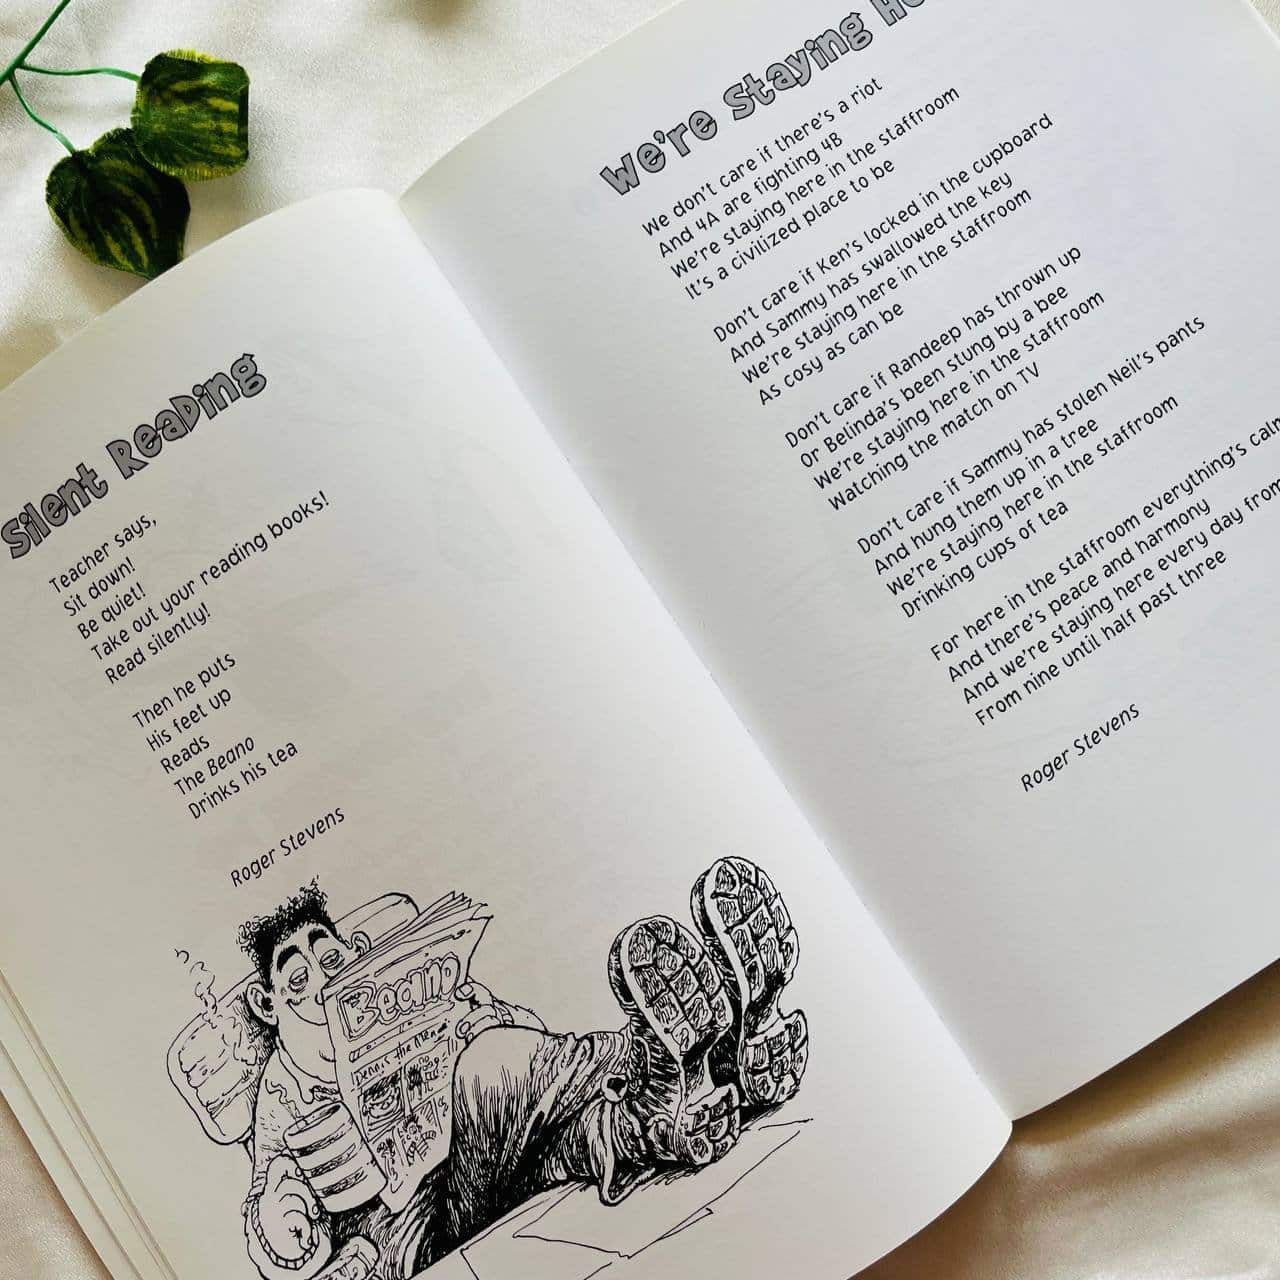 Silent Reading
Teacher says,
Sit down!
Be quiet!
Take out your reading books!
Read silently!
Then he puts
His feet up
Reads
The Beano
Drinks his tea
Roger Stevens
Beano
Dennis the Mena
We're Staying
We don't care if there's a riot
And 4A are fighting 4B
We're staying here in the staffroom
It's a civilized place to be
Don't care if Ken's locked in the cupboard
And Sammy has swallowed the key
We're staying here in the staffroom
As cosy as can be
Don't care if Randeep has thrown up
Or Belinda's been stung by a bee
We're staying here in the staffroom
Watching the match on TV
Don't care if Sammy has stolen Neil's pants
And hung them up in a tree
We're staying here in the staffroom
Drinking cups of tea
For here in the staffroom everything's calm
And there's peace and harmony
And we're staying here every day from
From nine until half past three
Roger Stevens